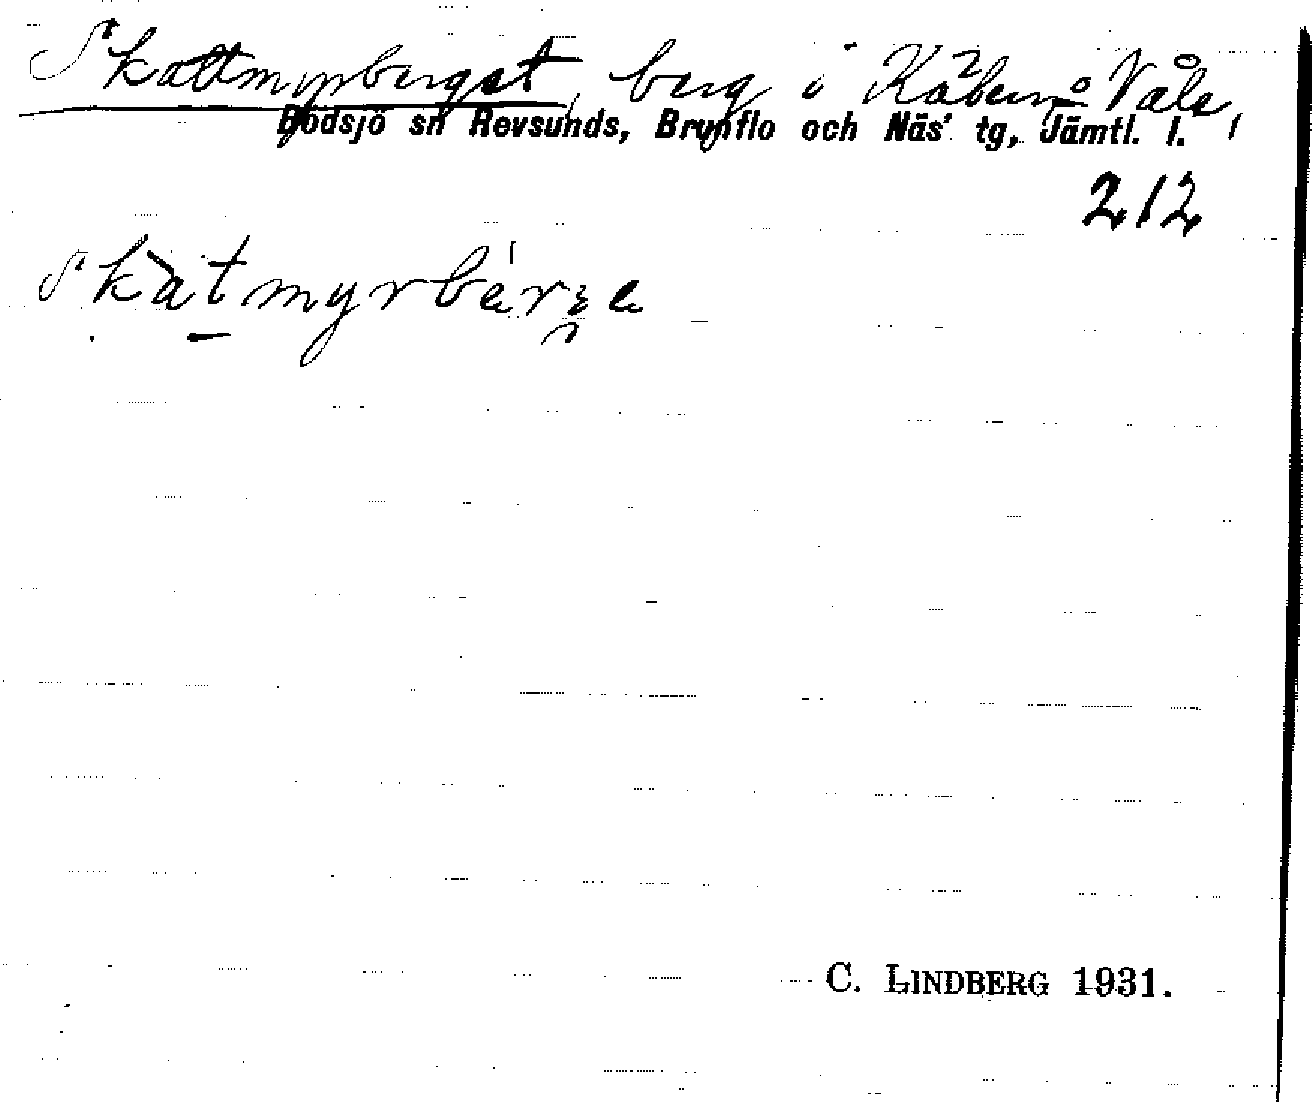 Skattmyrberget, berg i Våle,
Bodsjö sn Revsunds, Brunflo och Näs' tg, Jämtl. l.
212
skatmyrbärje
C. LINDBERG 1931.